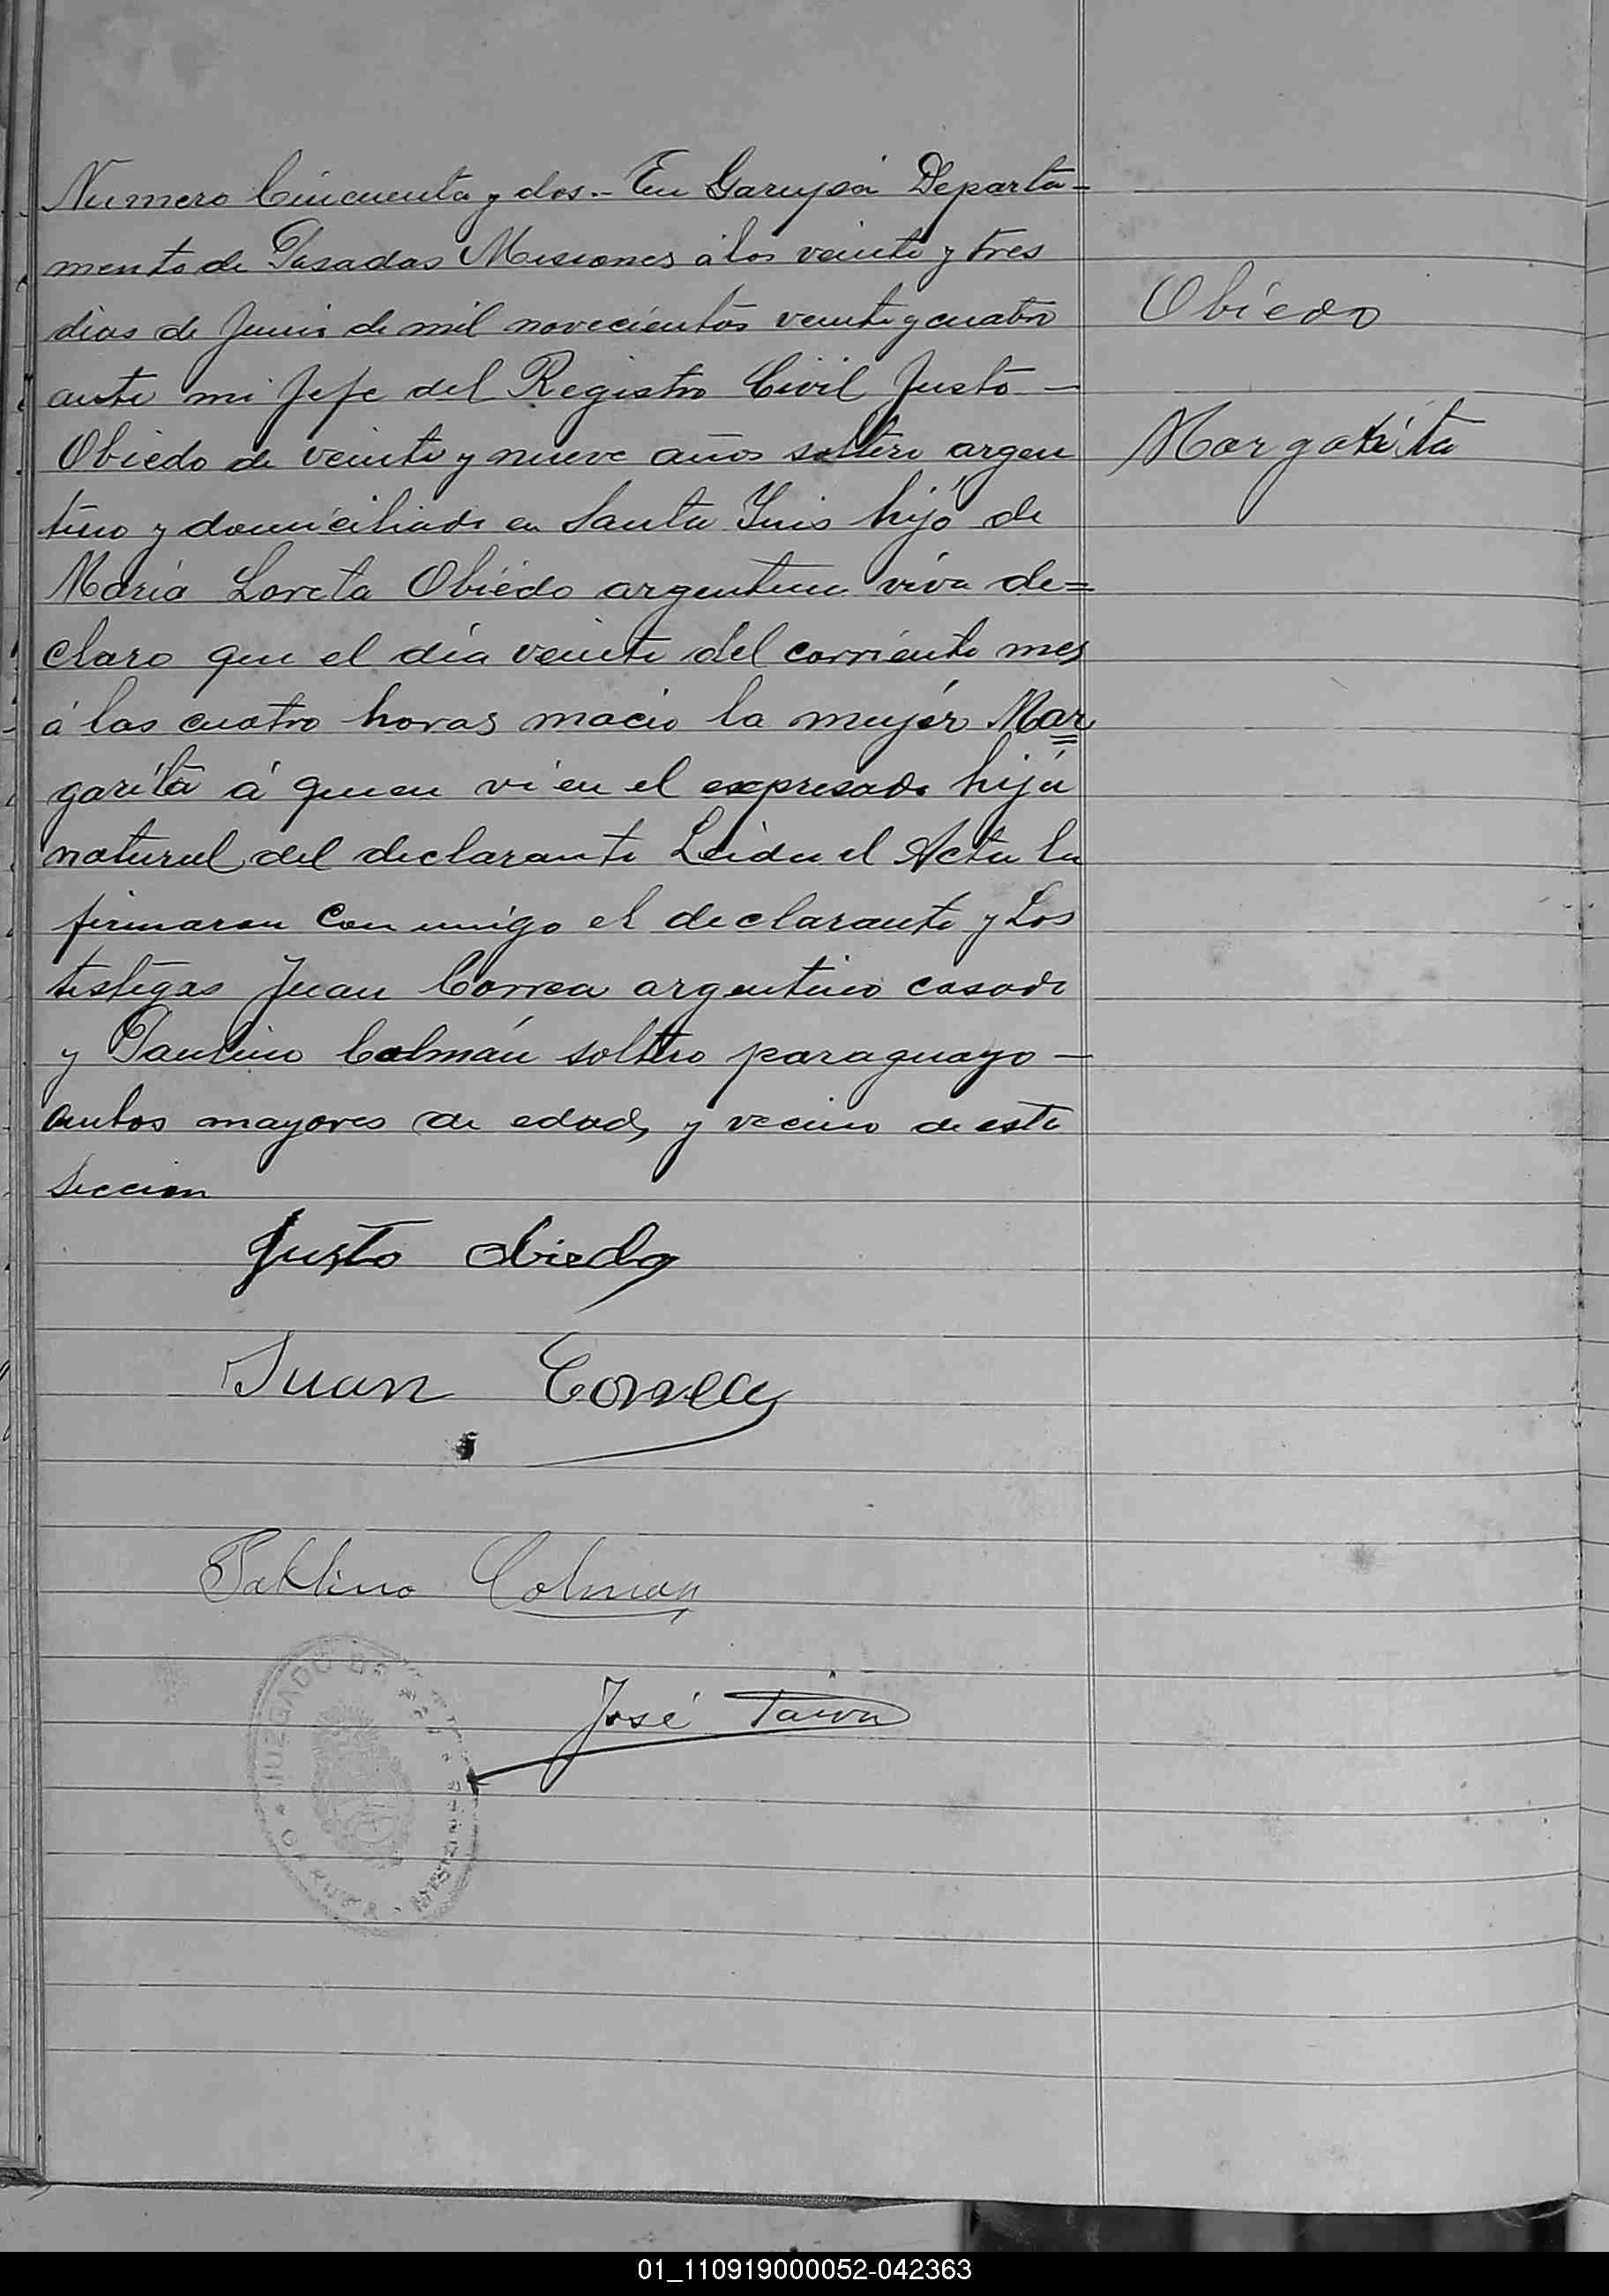 Numero Cincuenta y dos.- En Garupá Departa-
mento de Posadas Misiones á los veinte y tres
dias de Junio de mil novecientos veinte y cuatro
ante mi Jefe del Registro Civil Justo -
Obiedo de veinte y nueve años soltero argen
tino y domiciliado en Santa Inés hijo de
María Loreta Obiedo argentina viva de=
claro que el día veinte del corriente mes
á las cuatro horas nacio la mujer Mar
garita á quien vi en el expresado hija
natural del declarante Leida el Acta la
firmaron conmigo el declarante y Los
testigos Juan Correa argentino casado
y Paulino Colmán soltero paraguayo -
ambos mayores de edad, y vecino de esta
Sección
Obiedo
Margarita
Justo Obiedo
Juan Correa
Paulino Colman
José
JUZGADO DE PAZ
GARUPA